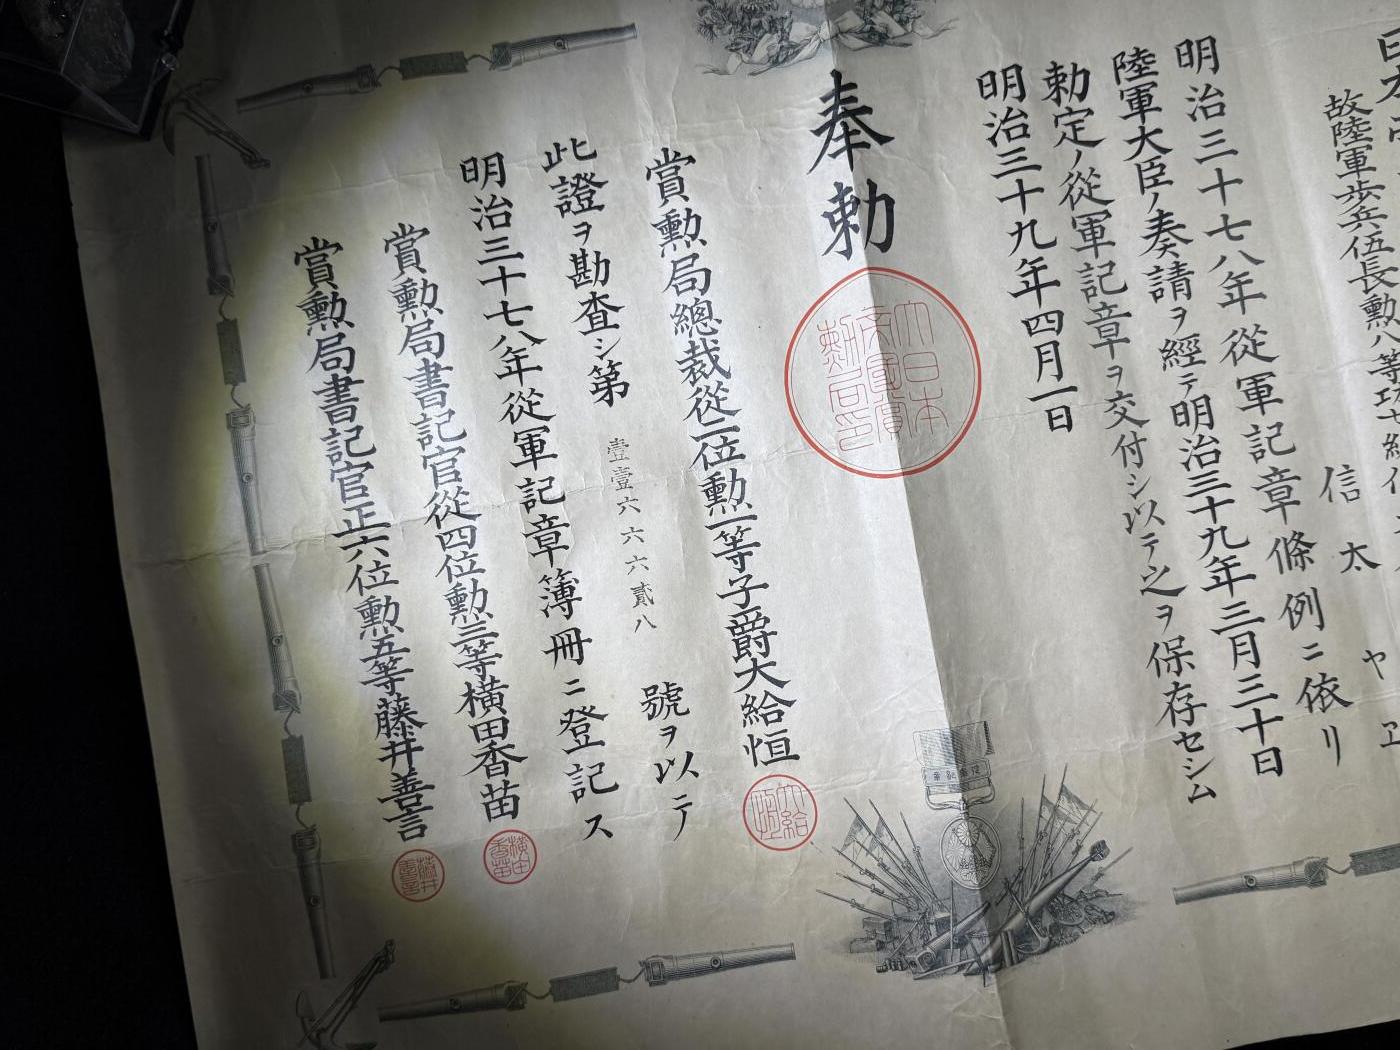 故陸軍歩兵伍長勲八等功七級
信太ヤヱ
明治三十七八年従軍記章條例ニ依リ
陸軍大臣ノ奏請ヲ經テ明治三十九年三月三十日
勅定ノ従軍記章ヲ交付シ以テ之ヲ保存セシム
明治三十九年四月一日
奉勅
大日本帝國賞勲局印
賞勲局總裁従二位勲一等子爵大給恒
大給恒
此證ヲ勘査シ第壹壹六六六貳八號ヲ以テ
明治三十七八年従軍記章簿冊ニ登記ス
賞勲局書記官従四位勲三等横田香苗
横田香苗
賞勲局書記官正六位勲五等藤井善言
藤井善言